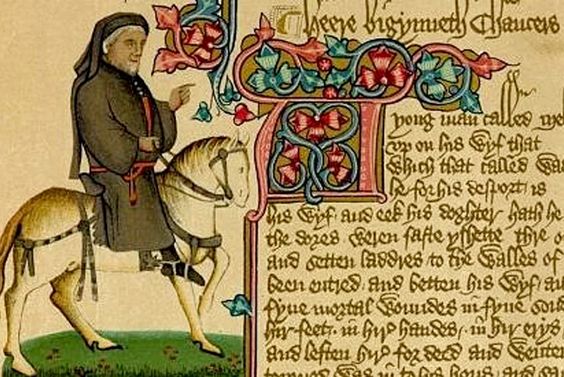 Heere bigynneth Chaucers
A yong man called Me
vp on his wyf that
which that called was
he for his desport is
his wyf and eek his doghter hath he
the dores weren faste yshette thre o
and setten laddres to the walles of
been entred and betten his wyf au
fyue mortal woundes in fyue sond
hir feet in hir handes in hir erys
and leften hir for deed and wenten
torned was in to his hous and sau